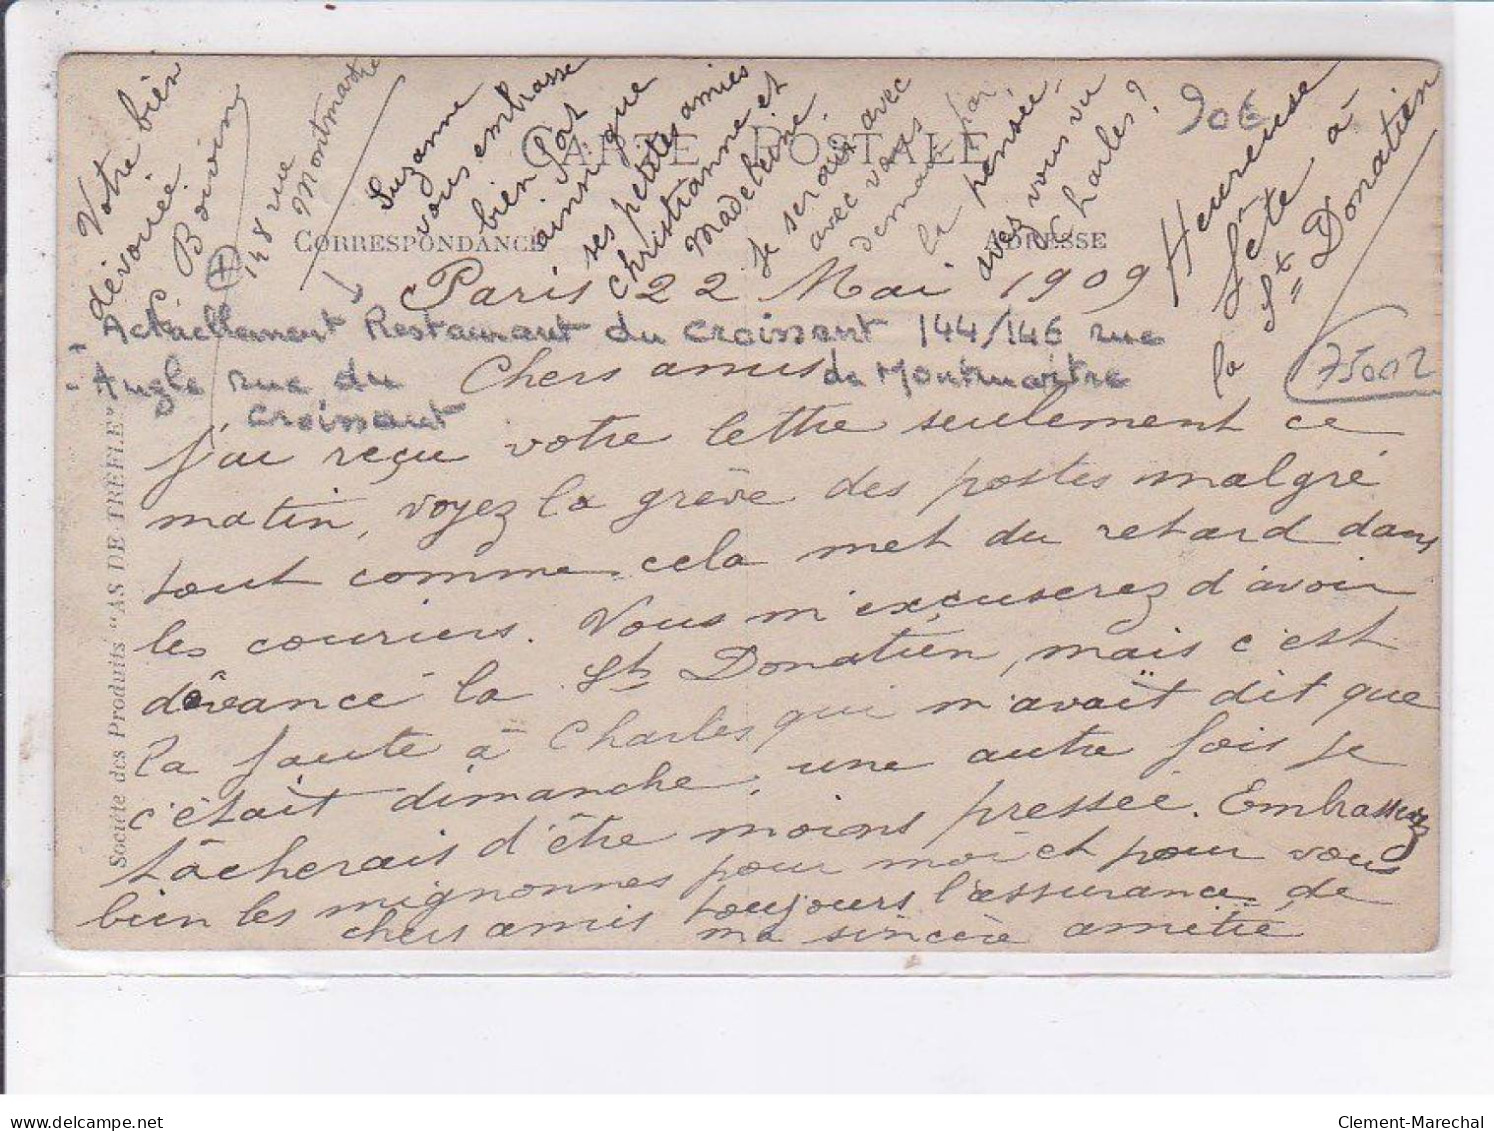 Votre bien
dévouée
Boivin
148 rue
Montmartre
Suzanne
vous embrasse
bien fort
ainsi que
ses petites amies
christianne et
Madeleine.
Je serais avec
avec vous
demain par
la pensée,
avez vous vu
Charles?
90€
Heureuse
fête à
la St Donatien
CARTE POSTALE
CORRESPONDANCE
ADRESSE
Paris 22 Mai 1909
Actuellement Restaurant du Croissant 144/146 rue
de Montmartre
Angle rue du
Croissant
75002
Chers amis
j'ai reçu votre lettre seulement ce
matin, voyez la grève des postes malgré
tout comme cela met du retard dans
les couriers. Vous m'excuserez d'avoir
dévancé la St Donatien, mais c'est
la faute à Charles qui m'avait dit que
c'était dimanche, une autre fois je
tâcherais d'être moins pressée. Embrassez
bien les mignonnes pour moi et pour vous
chers amis toujours l'assurance de
ma sincère amitié
Société des Produits "AS DE TRÈFLE"
delcampe.net
Clement-Marechal